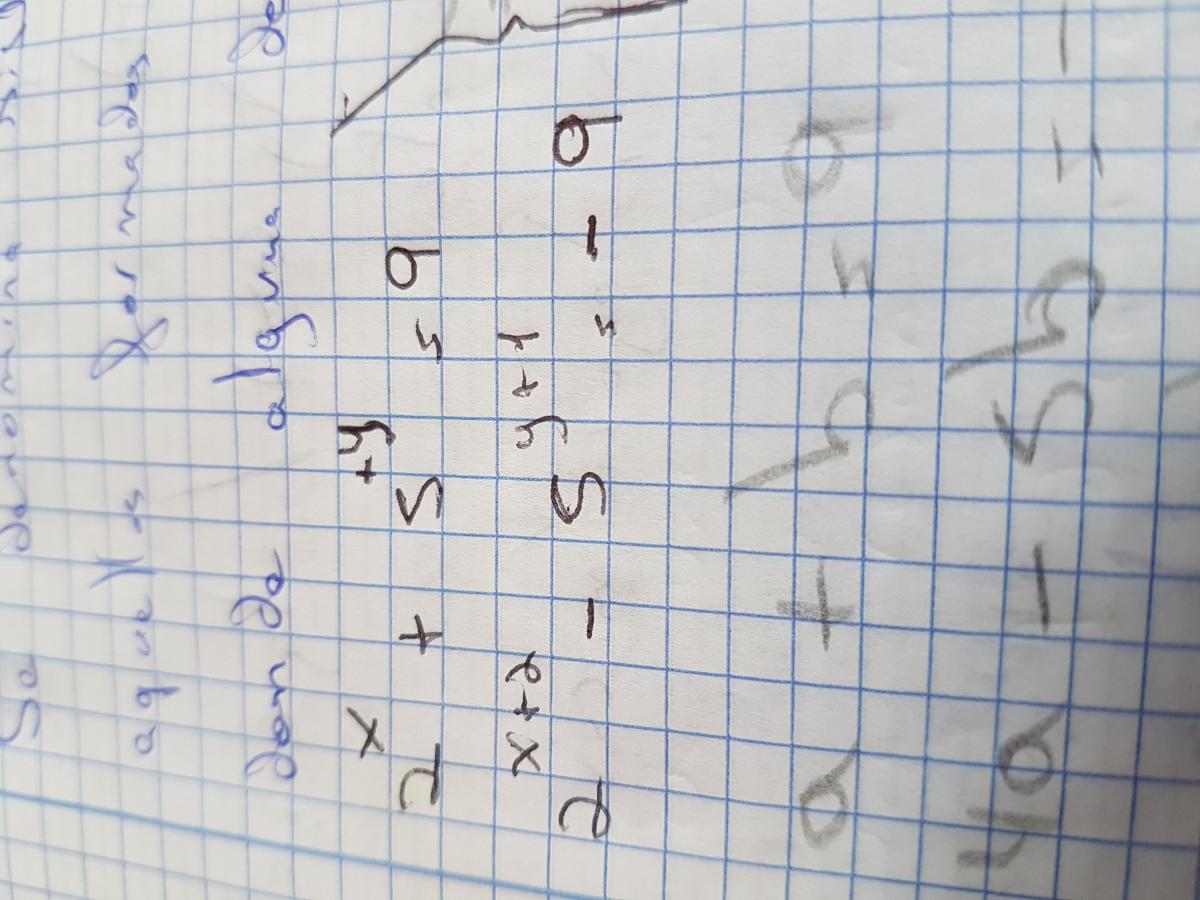 Se denomina
aquellos formados
donde alguna de
2^x + 5^+y = 9
2^x+2 - 5^y+1 = - 9
a + b = 9
4a - 5b = -